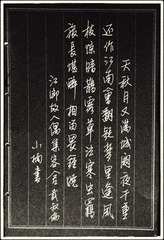 天秋月又滿城闕夜千重
還作江南會翻疑夢里逢風
枝惊暗鵲露草泣寒虫羈
旅長堪醉相留畏曉鐘
江鄉故人偶集客舍戴叔倫
小書